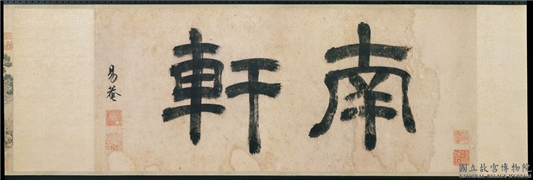 南軒
易菴
國立故宮博物院